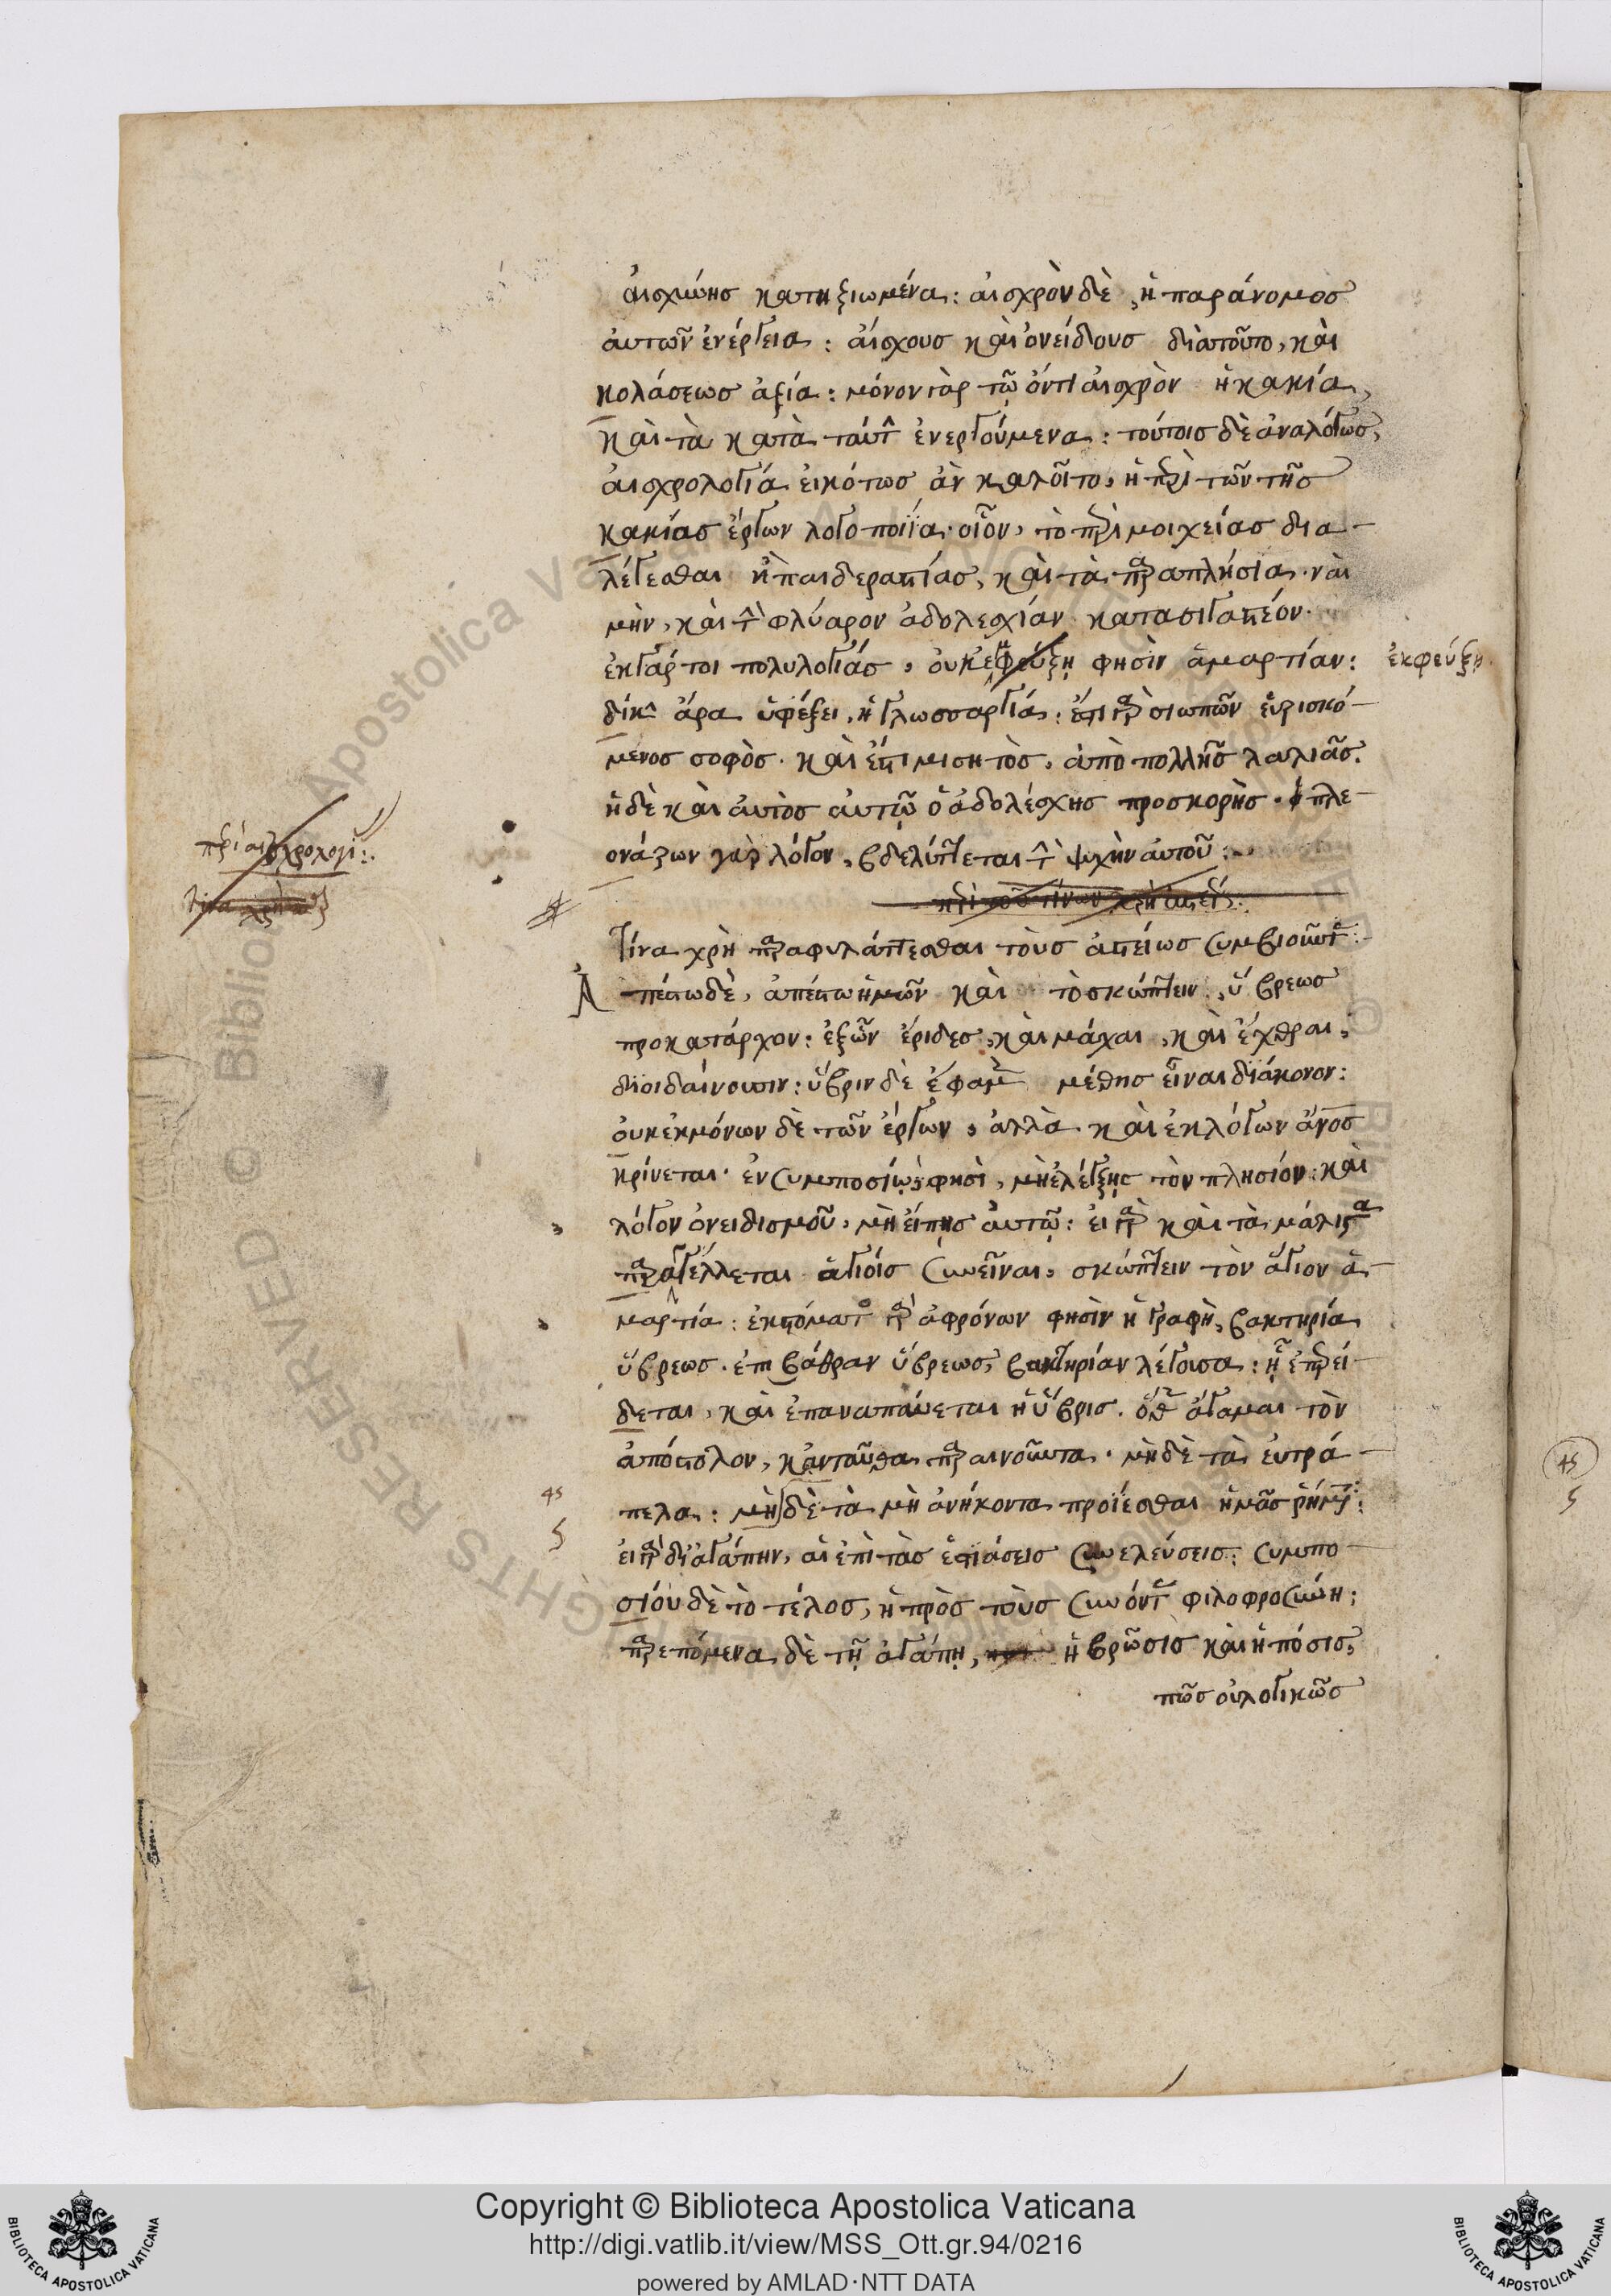 αἰσχύνης κατηξιωμένα: αἰσχρὸν δὲ, ἡ παράνομος
αὐτῶν ἐνέργεια: αἴσχους καὶ ὀνείδους διατοῦτο, καὶ
κολάσεως ἀξία: μόνον γὰρ τῷ ὄντι αἰσχρὸν ἡ κακία,
καὶ τὰ κατὰ ταύτ ἐνεργούμενα: τούτοις δὲ ἀναλόγως,
αἰσχρολογία εἰκότως ἂν καλοῖτο, ἡ πρὶ τῶν τῆς
κακίας ἔργων λογοποιΐα· οἷον, τὸ πρὶ μοιχείας δια-
λέγεσθαι ἢ παιδεραστίας, καὶ τὰ πραπλήσια· ναὶ
μὴν, καὶ τ φλύαρον ἀδολεσχίαν κατασιγαστέον·
ἐκ γάρ τοι πολυλογίας, οὐκ φησὶν ἁμαρτίαν: ἐκφεύξη
δίκ ἄρα ὑφέξει, ἡ γλωσσαργία: ἔστι γὰρ σιωπῶν εὑρισκό-
μενος σοφὸς· καὶ ἔστι μισητὸς, ἀπὸ πολλῆς λαλιᾶς.
ἤδε καὶ αὐτὸς αὑτῷ ὁ ἀδολέσχης προσκορὴς· ὁ πλε-
ονάζων γὰρ λόγον, βδελύττεται τ ψυχὴν αὐτοῦ:
πρὶ αἰσχρολογί:
Τίνα χρὴ πραφυλάττεσθαι τοὺς ἀστείως συμβιοῦντ:
Ἀπέστω δὲ, ἀπέστω ἡμῶν καὶ τὸ σκώπτειν, ὕβρεως
προκατάρχον: ἐξ ὧν ἔριδες, καὶ μάχαι, καὶ ἔχθραι,
διοιδαίνουσιν: ὕβριν δὲ ἔφαμ μέθης εἶναι διάκονον:
οὐκ ἐκ μόνων δὲ τῶν ἔργων, ἀλλὰ καὶ ἐκ λόγων ἄνος
κρίνεται· ἐν συμποσίῳ φησὶ, μὴ ἐλέγξῃς τὸν πλησίον: καὶ
λόγον ὀνειδισμοῦ, μὴ εἴπῃς αὐτῷ: εἰ γὰρ καὶ τὰ μάλιστα
πραγέλλεται ἁγίοις συνεῖναι, σκώπτειν τὸν ἅγιον ἁ-
μαρτία: ἐκ στόματ γὰρ ἀφρόνων φησὶν ἡ γραφὴ, βακτηρία
ὕβρεως· ἐπιβάθραν ὕβρεως, βακτηρίαν λέγουσα: ᾗ ἐπρεί-
δεται, καὶ ἐπαναπαύεται ἡ ὕβρις· ὅθ ἄγαμαι τὸν
ἀπόστολον, κἀνταῦθα πραινοῦντα· μὴ δὲ τὰ εὐτρά-
πελα: μὴ δὲ τὰ μὴ ἀνήκοντα προίεσθαι ἡμᾶς ῥήματ:
45
εἰ γὰρ δι ἀγάπην, αἱ ἐπὶ τὰς ἑστιάσεις συνελεύσεις: συμπο-
σίου δὲ τὸ τέλος, ἡ πρὸς τοὺς συνόντ φιλοφροσύνη:
πρεπόμενα δὲ τῇ ἀγάπῃ, ἡ βρῶσις καὶ ἡ πόσις,
πῶς οὐ λογικῶς
45
Copyright © Biblioteca Apostolica Vaticana
http://digi.vatlib.it/view/MSS_Ott.gr.94/0216
powered by AMLAD·NTT DATA
BIBLIOTECA APOSTOLICA VATICANA
BIBLIOTECA APOSTOLICA VATICANA